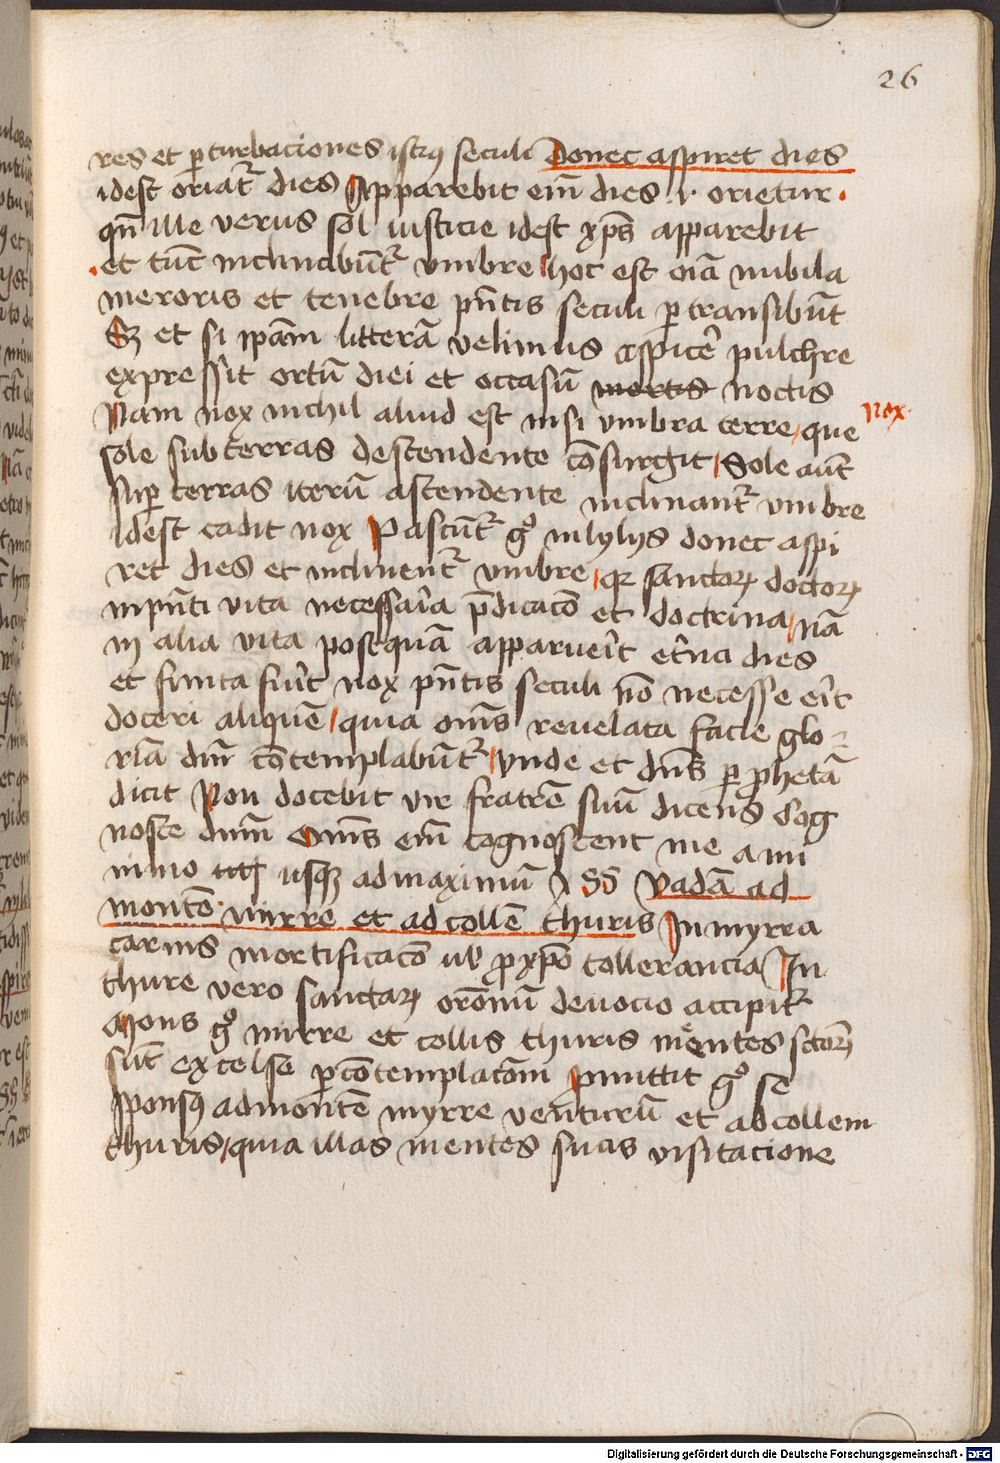 26
res et perturbaciones istius seculi Donec aspiret dies
idest oriat͛ dies Apparebit em̄ dies .i. orietur.
qn̄ ille verus sol iusticie idest xp̄s apparebit
et tūc inclinabūt͛ vmbre hoc est oīa nubila
meroris et tenebre pn̄tis seculi ꝑtransibūt
Sꝫ et si ip̄am litterā velimus aspicēr pulchre
expressit ortū diei et occasū mortis noctis
Nam nox nichil aliud est nisi vmbra terre, que
nox
sole subterras descendente cōsurgit, Sole aūt
suꝑ terras iterū ascendente inclinant͛ vmbre
idest cadit nox Pascūt͛ gͦ in lylys donec aspi
ret dies et inclinent͛ vmbre, qꝛ sanctoꝝ doctoꝝ
in pn̄ti vita necessar̄ia p̄dicacō et doctrina, nā
in alia vita postquā apparuer̄it et̄na dies
et finita fuer̄it nox pn̄tis seculi nō necesse er̄it
doceri aliquē, quia om̄s reuelata facie glo-
riā dn̄i cōtemplabūt͛, vnde et dn̄s ꝑ ꝓphetā
dicit Non docebit vir fratrē suū dicens Cog
nosce dnm̄ Om̄s em̄ cognoscent me a mi
nimo usqꝫ ad maximum Vadā ad
montē mirre et ad collē thuris In myrra
carnis mortificacō ul ꝓ xp̄o tollerancia In
thure vero sanctaꝝ orōnum deuocio accipit͛
Mons gͦ mirre et collis thuris mentes sctoꝝ
sūt excelse ꝑ cōtemplacōm ꝓmittit gͦ se
sponsus ad montē myrre venturū et ad collem
thuris, quia illas mentes suas visitacione
Digitalisierung gefördert durch die Deutsche Forschungsgemeinschaft - DFG